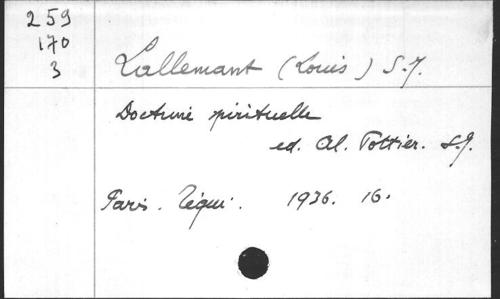 259
170
3
Lallemant (Louis) S.J.
Doctrine spirituelle
ed. Al. Pottier. S.J.
Paris. Téqui. 1936. 16.